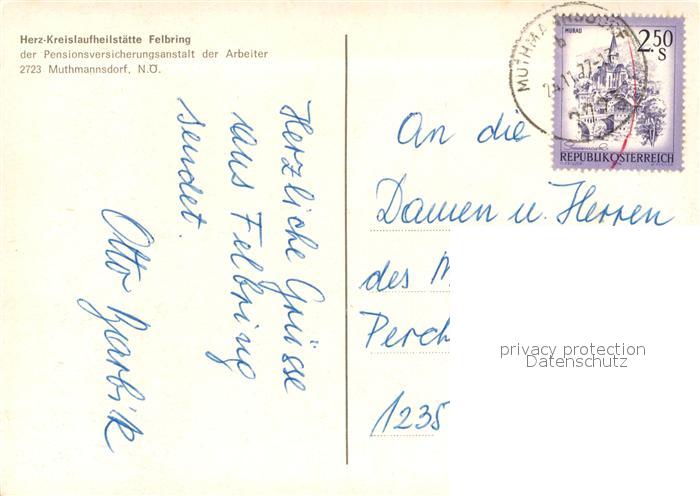 Herz-Kreislaufheilstätte Felbring
der Pensionsversicherungsanstalt der Arbeiter
2723 Muthmannsdorf, N.Ö.
Herzliche Grüsse
aus Felbring
sendet.
Otto
MUTHMANNSDORF
b
MURAU
2.50
S
REPUBLIK ÖSTERREICH
An die
Damen u. Herren
des M
Perch
1235
privacy protection
Datenschutz